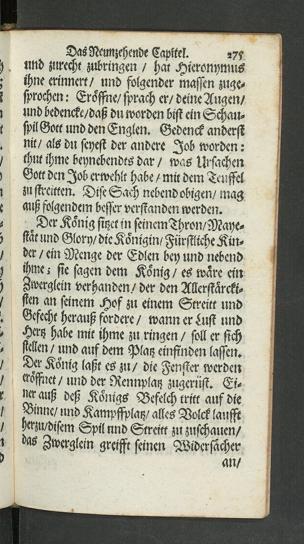 Das Neunzehende Capitel. 275
und zurecht zubringen / hat Hieronymus
ihne erinnert / und folgender massen zuge-
sprochen: Eröffne / sprach er / deine Augen /
und bedencke / daß du worden bist ein Schau-
spil Gott und den Englen. Gedenck anderst
nit / als du seyest der andere Job worden:
thut ihme beynebendts dar / was Ursachen
Gott den Job erwehlt habe / mit dem Teuffel
zu streitten. Dise Sach nebend obigen / mag
auß folgendem besser verstanden werden.
Der König sitzet in seinem Thron / Maye-
stät und Glory / die Königin / Fürstliche Kin-
der / ein Menge der Edlen bey und nebend
ihme: sie sagen dem König / es wäre ein
Zwerglein verhanden / der den Allerstärcki-
sten an seinem Hof zu einem Streitt und
Gefecht herauß fordere / wann er Lust und
Hertz habe mit ihme zu ringen / soll er sich
stellen / und auf dem Platz einfinden lassen.
Der König laßt es zu / die Fenster werden
eröffnet / und der Rennplatz zugerüst. Ei-
ner auß deß Königs Befelch tritt auf die
Binne / und Kampffplatz / alles Volck laufft
herzu / disem Spil und Streitt zu zuschauen /
das Zwerglein greifft seinen Widersächer
an /